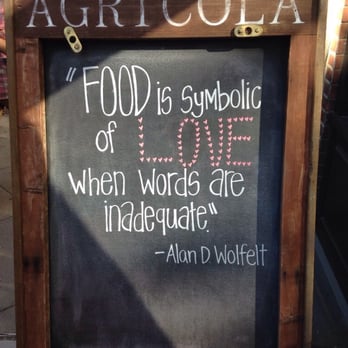 AGRICOLA
"FOOD is symbolic
of LOVE
when words are
inadequate."
-Alan D Wolfelt